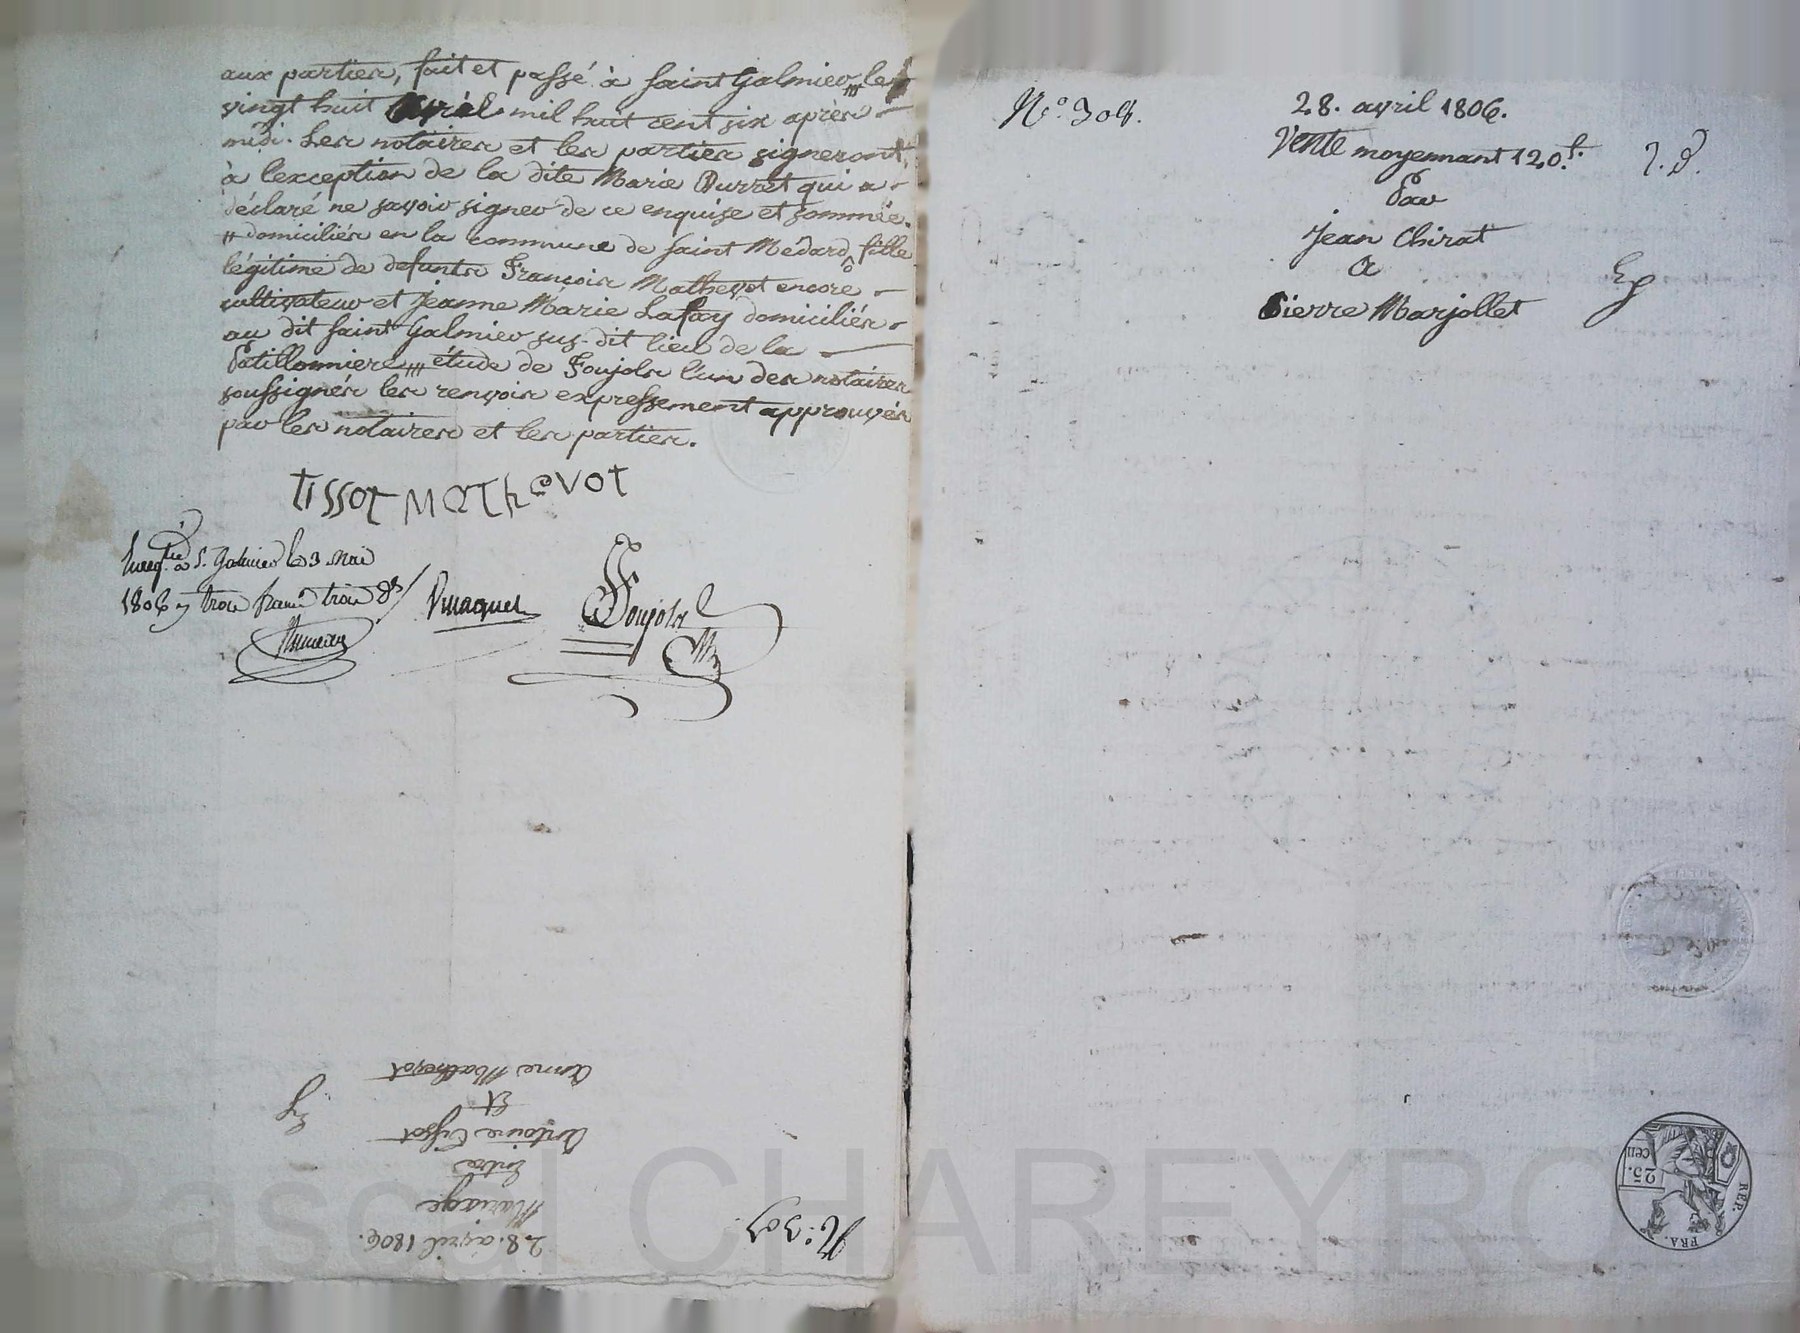 aux parties, fait et passé à Saint Galmier, le
vingt huit avril mil huit cent six après
midi. Les notaires et les parties signeront,
à l'exception de la dite Marie Durret qui a
déclaré ne savoir signer de ce enquise et sommée.
domiciliés en la commune de Saint Médard, fille
légitime de defunts François Mathevot encore
cultivateur et Jeanne Marie Lafay domiciliés
au dit Saint Galmier sus-dit lieu de la
étude de Foujols l'un des notaires
soussignés les renvois expressement approuvés
par les notaires et les parties.
tissot Mathevot
Enreg.é à S. Galmier le 3 mai
1806
Foujols
Anne Mathevot
Et
Antoine Tissot
Entre
Mariage
28. avril 1806.
N.º 303.
N.º 304.
28. avril 1806.
Vente moyennant 120.f.
Par
Jean Chirat
A
Pierre Marjollet
REP. FRA.
25. CEN
Pascal CHAREYRON